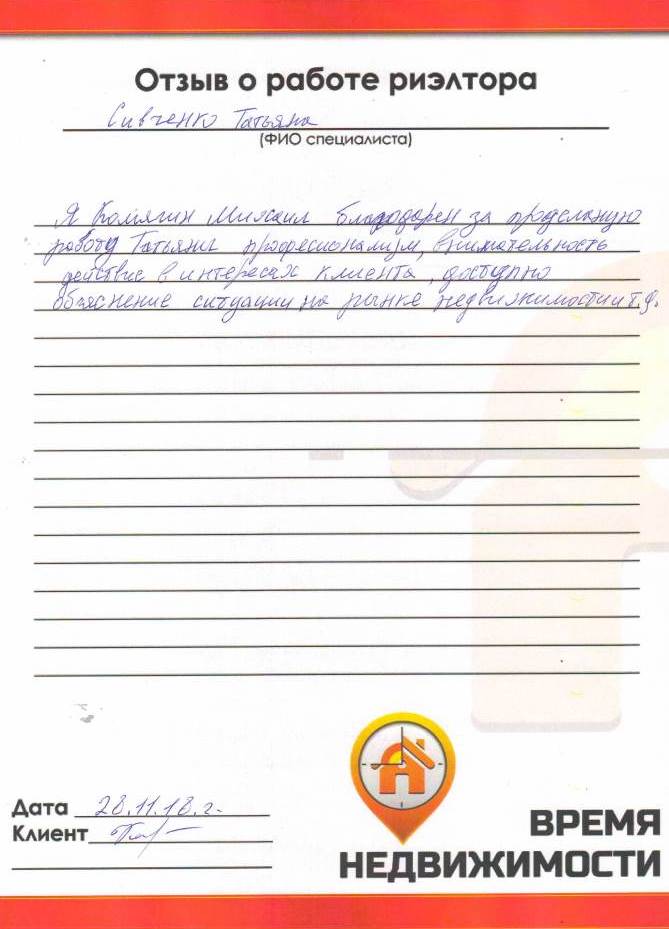 Отзыв о работе риэлтора
Сивченко Татьяна
(ФИО специалиста)
Я Комягин Михаил благодарен за проделаную
работу Татьяны професионализм, внимательность
действие в интересах клиента, доступно
объяснение ситуации на рынке недвижимости и т.д.
Дата 28.11.18.г.
Клиент
ВРЕМЯ
НЕДВИЖИМОСТИ